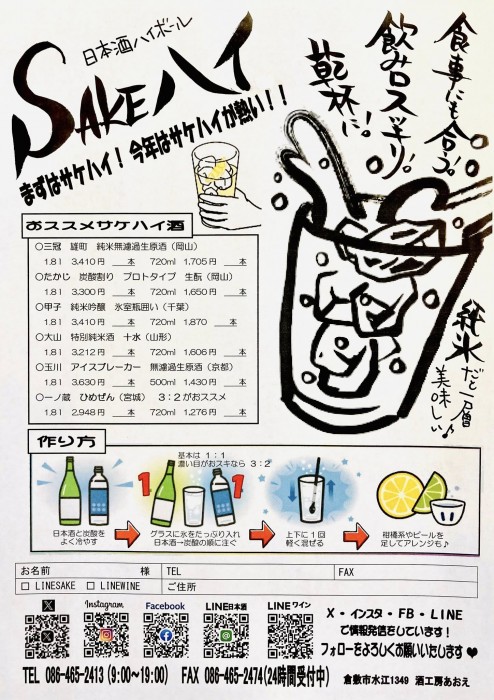 日本酒ハイボール
SAKEハイ
まずはサケハイ！今年はサケハイが熱い！！
食事にも合う。
飲み口スッキリ。
乾杯に！
純米だと一層
美味しい♪
おススメサケハイ酒
○三冠 雄町 純米無濾過生原酒（岡山）
1.8l 3,410円 __本 720ml 1,705円 __本
○たかじ 炭酸割り プロトタイプ 生酛（岡山）
1.8l 3,300円 __本 720ml 1,650円 __本
○甲子 純米吟醸 氷室瓶囲い（千葉）
1.8l 3,410円 __本 720ml 1,870 __本
○大山 特別純米酒 十水（山形）
1.8l 3,212円 __本 720ml 1,606円 __本
○玉川 アイスブレーカー 無濾過生原酒（京都）
1.8l 3,630円 __本 500ml 1,430円 __本
○一ノ蔵 ひめぜん（宮城） 3：2がおススメ
1.8l 2,948円 __本 720ml 1,276円 __本
作り方
基本は 1：1
濃い目がおスキなら 3：2
1 1
日本酒と炭酸を
よく冷やす
グラスに氷をたっぷり入れ
日本酒→炭酸の順に注ぐ
上下に1回
軽く混ぜる
柑橘系やビールを
足してアレンジも♪
お名前 様 TEL FAX
□ LINESAKE □ LINEWINE ご住所
X Instagram Facebook LINE日本酒 LINEワイン
X・インスタ・FB・LINE
で情報発信をしています！
フォローをよろしくお願いいたします♥
TEL 086-465-2413（9:00〜19:00） FAX 086-465-2474（24時間受付中） 倉敷市水江1349 酒工房あおえ